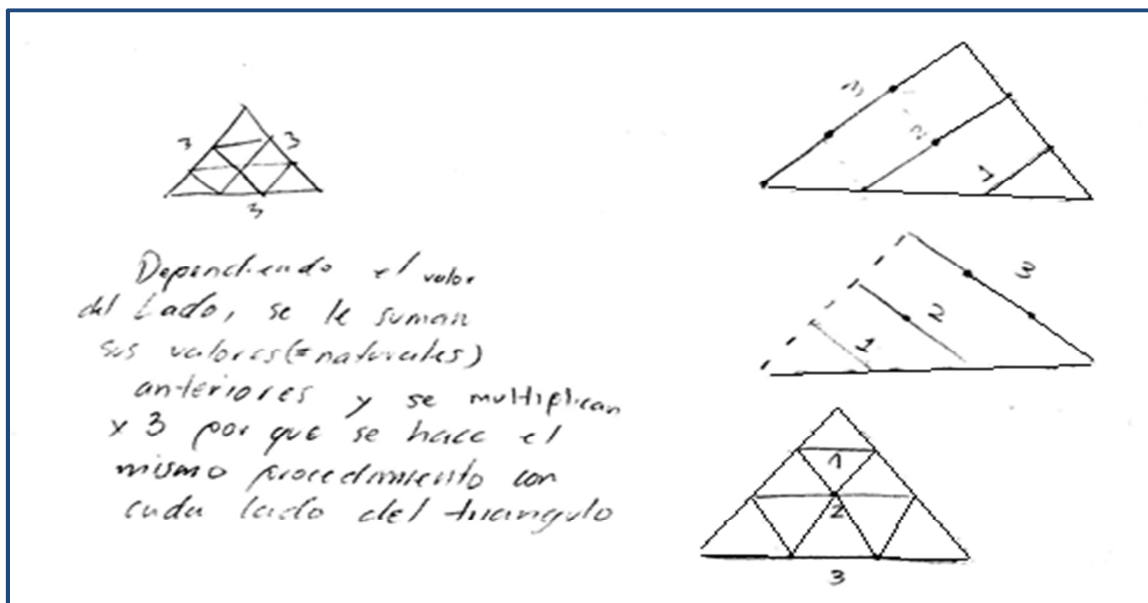 3 3
3
Dependiendo el valor
del Lado, se le suman
sus valores (=naturales)
anteriores y se multiplican
x 3 por que se hace el
mismo procedimiento con
cada lado del triangulo
3
2
1
3
2
1
1
2
3